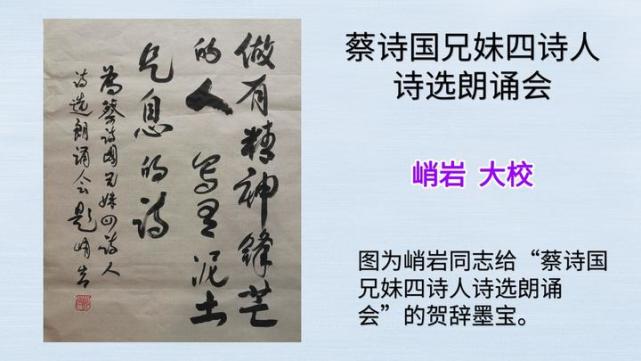 做有精神锋芒
的人 写有泥土
气息的诗
为蔡诗国兄妹四诗人
诗选朗诵会题 峭岩
蔡诗国兄妹四诗人
诗选朗诵会
峭岩 大校
图为峭岩同志给“蔡诗国
兄妹四诗人诗选朗诵
会”的贺辞墨宝。